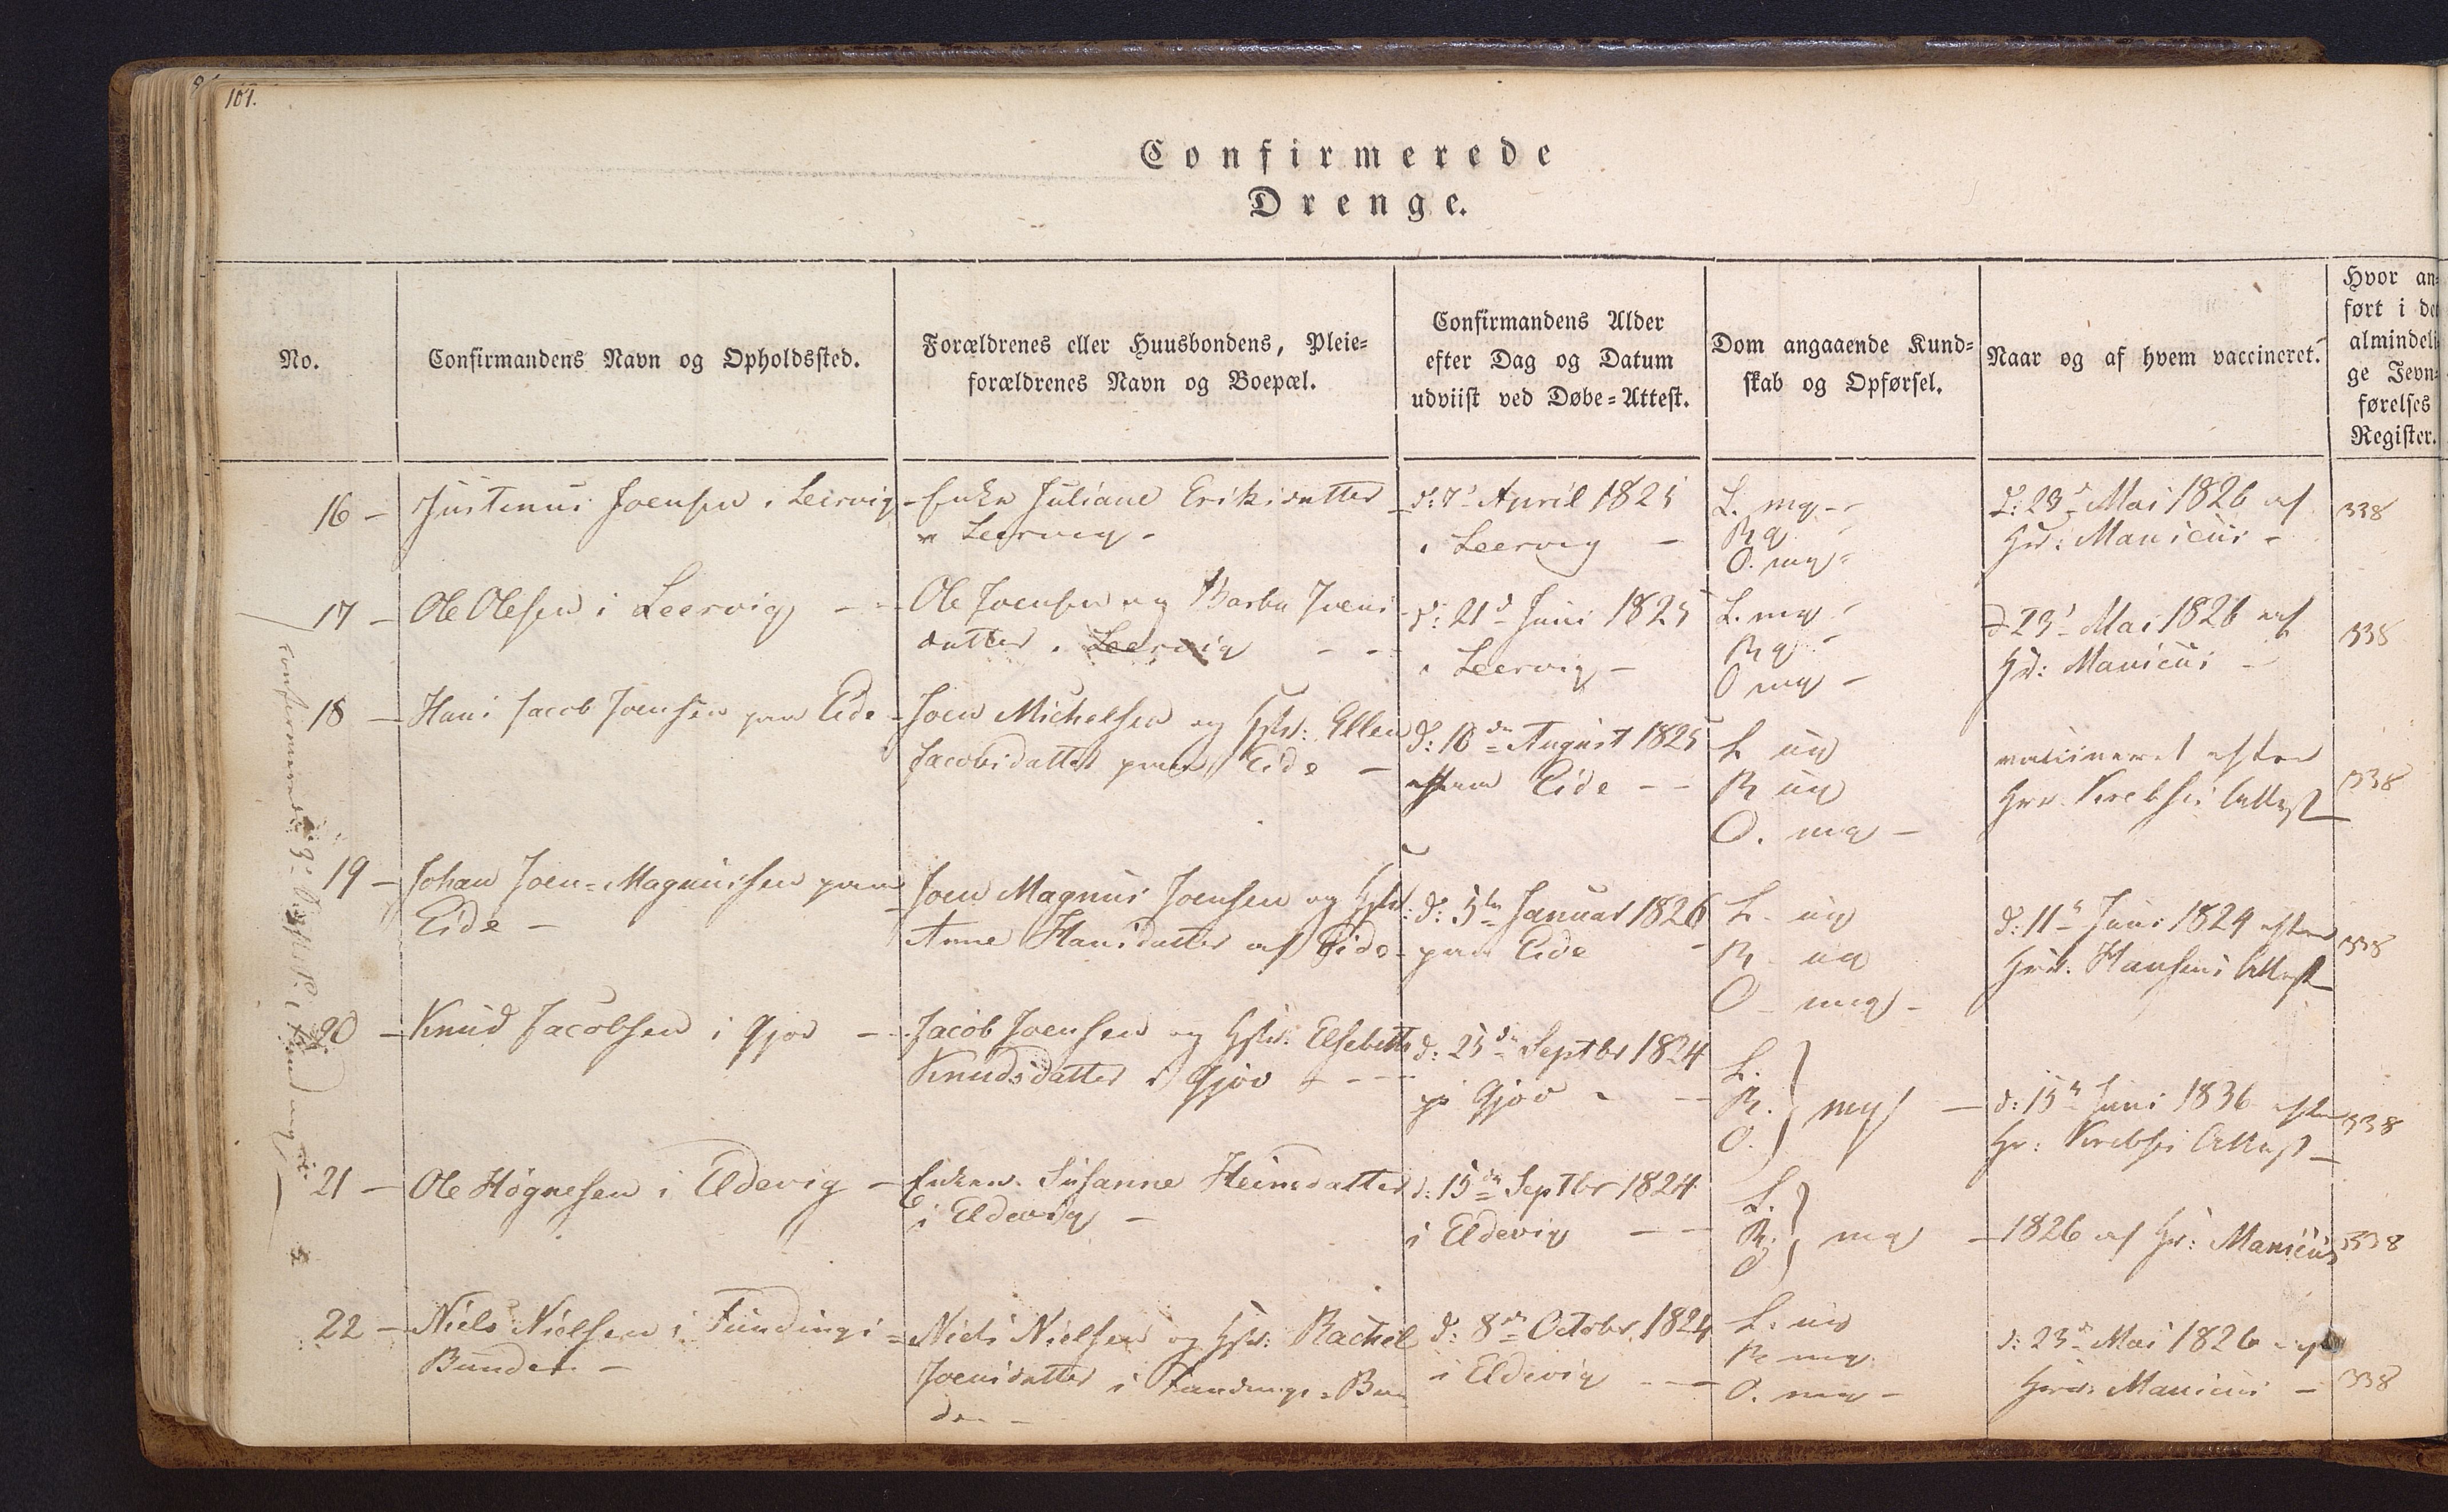 104.
Confirmerede
Drenge.
No.
Confirmandens Navn og Opholdssted.
Forældrenes eller Huusbondens, Pleie=
forældrenes Navn og Boepæl.
Confirmandens Alder
efter Dag og Datum
udviist ved Døbe=Attest.
Dom angaaende Kund=
skab og Opførsel.
Naar og af hvem vaccineret.
Hvor an=
ført i det
almindeli=
ge Jevn=
førelses
Register.
16 – Justinus Joensen i Leervig
Enke Juliane Eriksdatter
Leervig –
d: 7d April 1825
i Leervig –
L. mg –
R g
O. mg –
d: 23d Mai 1826 af
Hr: Manicus –
338
17 – Ole Olesen i Leervig –
Ole Joensen og Barba Joens
datter i Leervig – –
d: 21d Juni 1825
i Leervig –
L. mg
R g
O mg –
d 23d Mai 1826 af
Hr: Manicus –
338
18 – Hans Jacob Joensen paa Eide
Joen Michelsen og Hstr: Ellen
Jacobsdatter paa Eide –
d: 10de August 1825
Eide – –
L ug
R ug
O. mg –
vaccineret efter
Hrr. Attest
338
19 – Johan Joen=Magnussen paa
Eide –
Joen Magnus Joensen og Hstr:
Anne Hansdatter af Eide –
d: 5te Januar 1826
paa Eide –
L – ug
R – ug
O – mg –
d: 11te Juni 1829 efter
Hrr. Hansens Attest
338
20 – Knud Jacobsen i Gjov –
Jacob Joensen og Hstr: Elsebeth
Knudsdatter i Gjov – – –
d: 25de Septbr 1824
i Gjov – –
L.
R. } mg –
O.
d: 15de Juni 1836 efter
Hr: Attest –
338
21 – Ole Høgnesen i Eldevig –
Enken Susanne Heinesdatter
i Eldevig –
d: 15de Septbr 1824
i Eldevig – –
L.
R. } mg
O
– 1826 af Hr: Manicus
338
22 – Niels Nielsen i Fundings=
Bunden –
Niels Nielsen og Hstr: Rachel
Joensdatter i Fundings=Bun
den –
d: 8de Octobr. 1824
i Eldevig – –
L. ug
R mg
O. mg –
d: 23de Mai 1826
Hrr: Manicus –
338